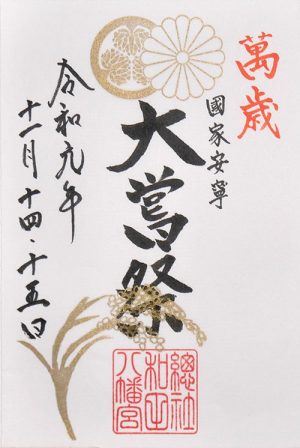 萬歳
國家安寧
大嘗祭
令和元年
十一月十四・十五日
總社
和田
八幡宮